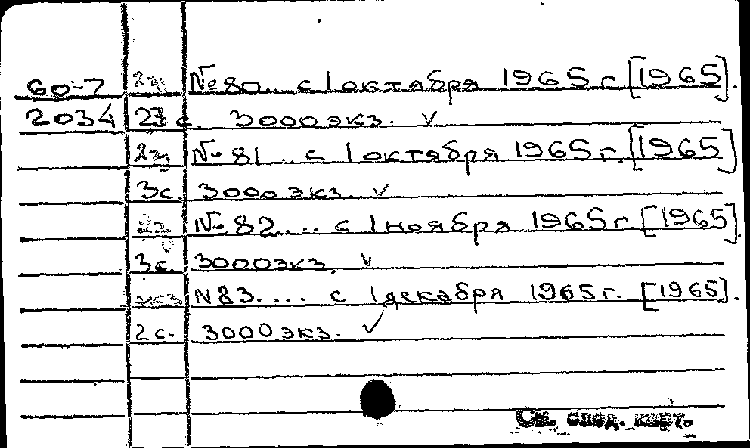 60-7 2э. № 80... с 1 октября 1965 г. [1965].
2034 23 с. 3000 экз. ✓
2э. № 81... с 1 октября 1965 г. [1965]
3с. 3000 экз. ✓
2э. № 82.... с 1 ноября 1965 г. [1965].
3с. 3000 экз. ✓
N 83.... с 1 декабря 1965 г. [1965].
2с. 3000 экз. ✓
См. след. карт.